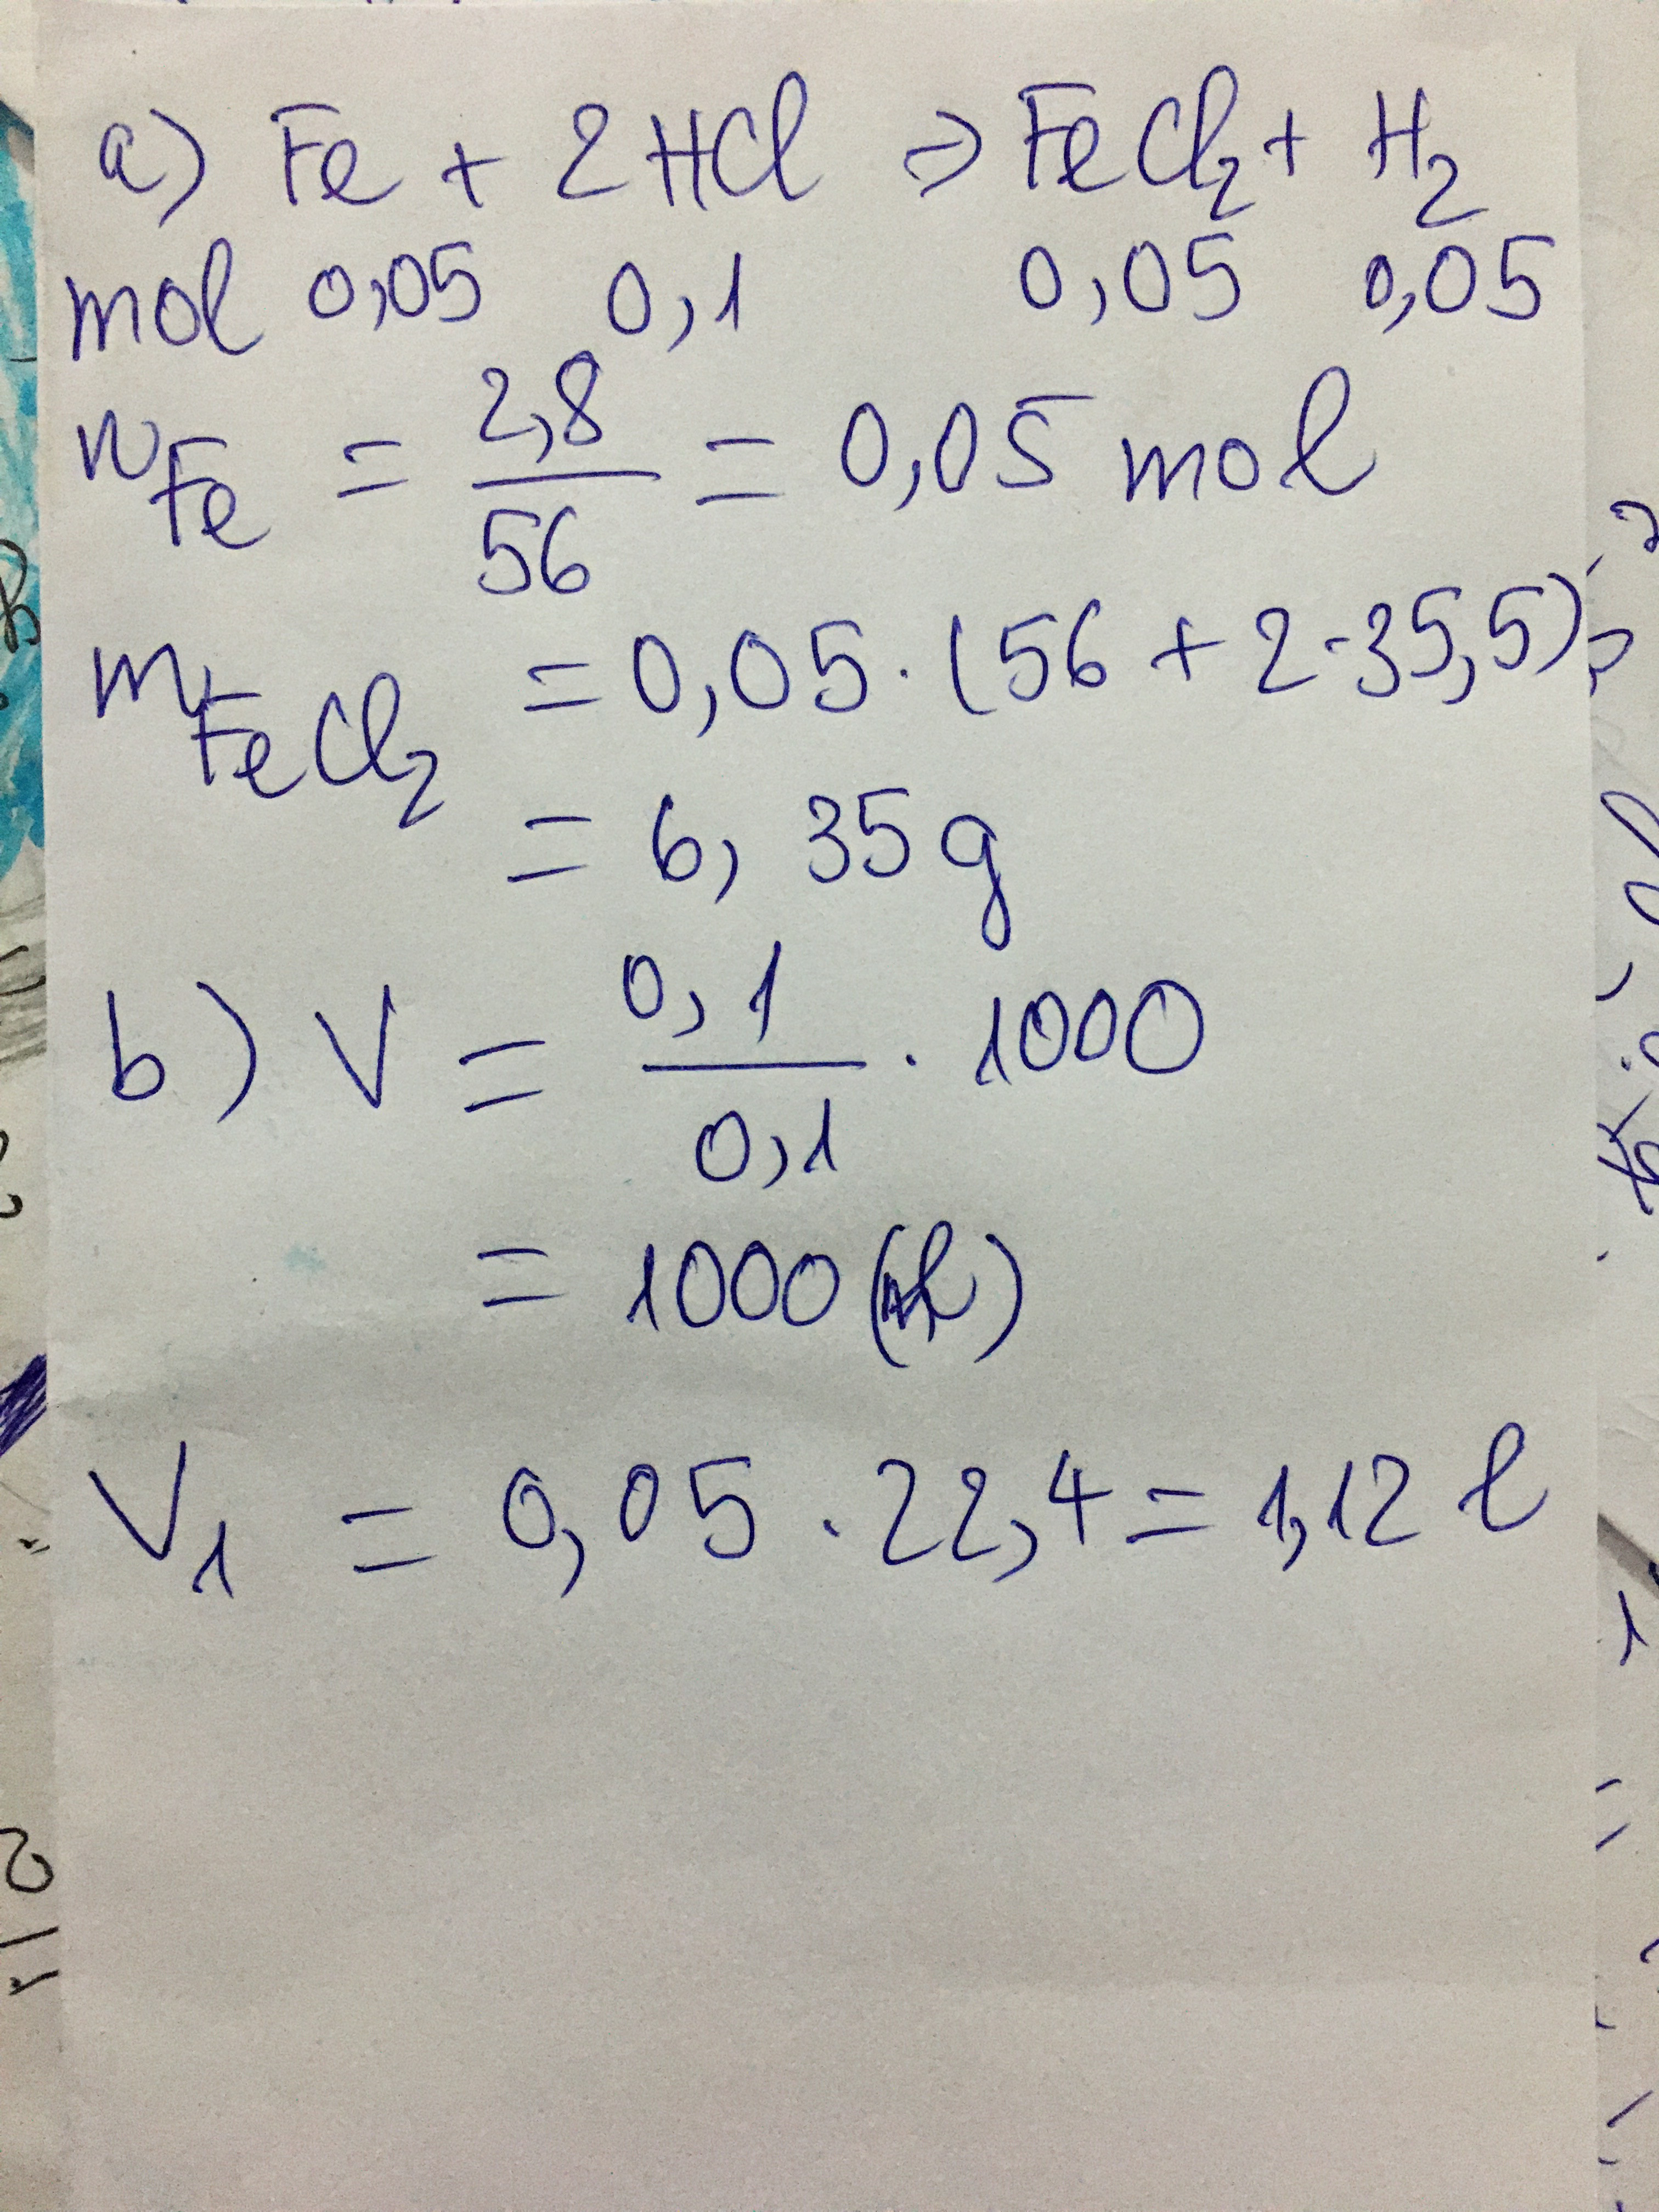 a) Fe + 2HCl => FeCl₂ + H₂
mol 0,05 0,1 0,05 0,05
n Fe = 2,8/56 = 0,05 mol
m FeCl₂ = 0,05 . (56 + 2.35,5)
= 6,35g
b) V = 0,1/0,1 . 1000
= 1000 ( )
V₁ = 0,05 . 22,4 = 1,12 l